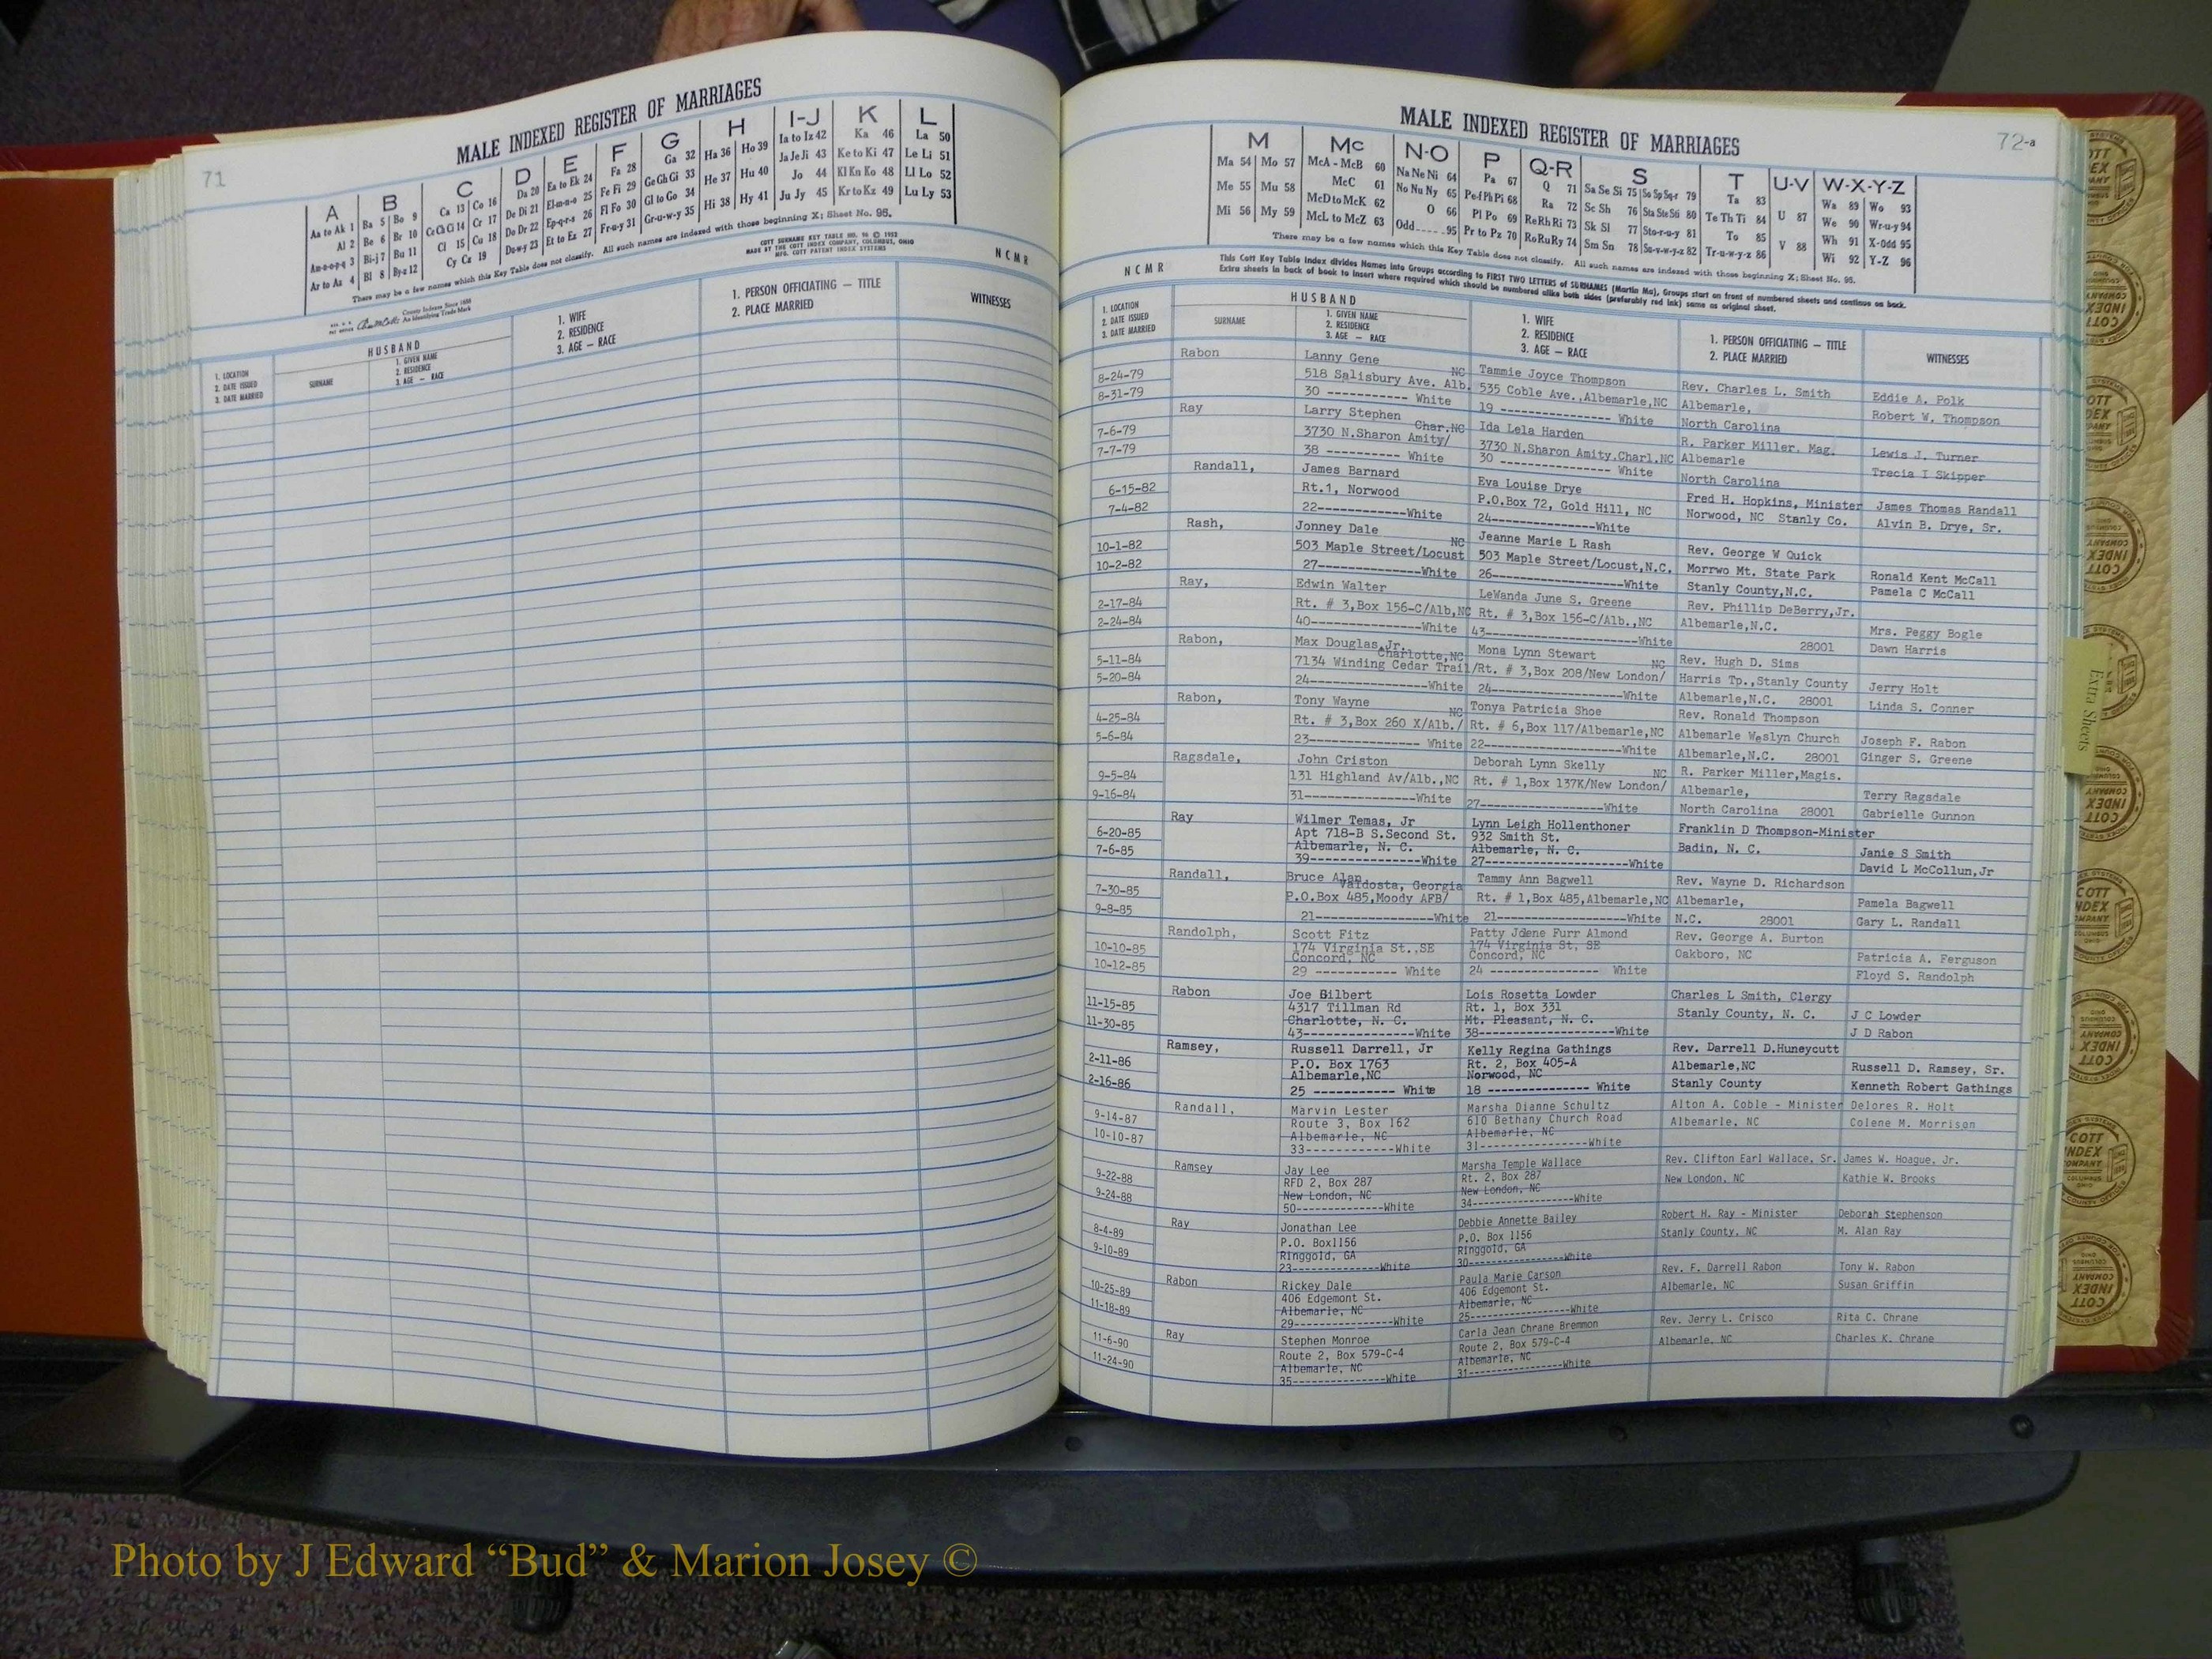 71
MALE INDEXED REGISTER OF MARRIAGES
A B C D E F G H I-J K L
Aa to Ak 1 Ba 5 Bo 9 Ca 13 Co 16 Da 20 Ea to Ek 24 Fa 28 Ga 32 Ha 36 Ho 39 Ia to Iz 42 Ka 46 La 50
Al 2 Be 6 Br 10 Ce Ch Ci 14 Cr 17 De Di 21 El-m-n-o 25 Fe Fi 29 Ge Gh Gi 33 He 37 Hu 40 Ja Je Ji 43 Ke to Ki 47 Le Li 51
Am-n-o-p-q 3 Bi-j 7 Bu 11 Cl 15 Cu 18 Do Dr 22 Ep-q-r-s 26 Fl Fo 30 Gl to Go 34 Hi 38 Hy 41 Jo 44 Kl Kn Ko 48 Ll Lo 52
Ar to Az 4 Bl 8 By-z 12 Cy Cz 19 Du-w-y 23 Et to Ez 27 Fr-u-y 31 Gr-u-w-y 35 Ju Jy 45 Kr to Kz 49 Lu Ly 53
There may be a few names which this Key Table does not classify. All such names are indexed with those beginning X; Sheet No. 95.
COTT SURNAME KEY TABLE NO. 96 © 1952
MADE BY THE COTT INDEX COMPANY, COLUMBUS, OHIO
MFG. COTT PATENT INDEX SYSTEMS
County Indexes Since 1888
An Identifying Trade Mark
N C M R
HUSBAND
1. LOCATION
2. DATE ISSUED
3. DATE MARRIED
SURNAME
1. GIVEN NAME
2. RESIDENCE
3. AGE — RACE
1. WIFE
2. RESIDENCE
3. AGE — RACE
1. PERSON OFFICIATING — TITLE
2. PLACE MARRIED
WITNESSES
72-a
MALE INDEXED REGISTER OF MARRIAGES
M Mc N-O P Q-R S T U-V W-X-Y-Z
Ma 54 Mo 57 McA - McB 60 Na Ne Ni 64 Pa 67 Q 71 Sa Se Si 75 So Sp Sq-r 79 Ta 83 U 87 Wa 89 Wo 93
Me 55 Mu 58 McC 61 No Nu Ny 65 Pe-f Ph Pi 68 Ra 72 Sc Sh 76 Sta Ste Sti 80 Te Th Ti 84 V 88 We 90 Wr-u-y 94
Mi 56 My 59 McD to McK 62 O 66 Pl Po 69 Re Rh Ri 73 Sk Sl 77 Sto-r-u-y 81 To 85 Wh 91 X-Odd 95
McL to McZ 63 Odd 95 Pr to Pz 70 Ro Ru Ry 74 Sm Sn 78 Su-v-w-y-z 82 Tr-u-w-y-z 86 Wi 92 Y-Z 96
There may be a few names which this Key Table does not classify. All such names are indexed with those beginning X; Sheet No. 95.
This Cott Key Table Index divides Names into Groups according to FIRST TWO LETTERS of SURNAMES (Martin Ma), Groups start on front of numbered sheets and continue on back.
Extra sheets in back of book to insert where required which should be numbered alike both sides (preferably red ink) same as original sheet.
N C M R
HUSBAND
1. LOCATION
2. DATE ISSUED
3. DATE MARRIED
SURNAME
1. GIVEN NAME
2. RESIDENCE
3. AGE — RACE
1. WIFE
2. RESIDENCE
3. AGE — RACE
1. PERSON OFFICIATING — TITLE
2. PLACE MARRIED
WITNESSES
Rabon Lanny Gene Tammie Joyce Thompson Rev. Charles L. Smith Eddie A. Polk
8-24-79 518 Salisbury Ave. Alb. NC 535 Coble Ave.,Albemarle,NC Albemarle, Robert W. Thompson
8-31-79 30 ------------ White 19 --------------- White North Carolina
Ray Larry Stephen Ida Lela Harden R. Parker Miller. Mag. Lewis J. Turner
7-6-79 3730 N.Sharon Amity/ Char.NC 3730 N.Sharon Amity.Charl.NC Albemarle Trecia I Skipper
7-7-79 38 ---------- White 30 --------------- White North Carolina
Randall, James Barnard Eva Louise Drye Fred H. Hopkins, Minister James Thomas Randall
6-15-82 Rt.1, Norwood P.O.Box 72, Gold Hill, NC Norwood, NC Stanly Co. Alvin B. Drye, Sr.
7-4-82 22------------White 24---------------White
Rash, Jonney Dale Jeanne Marie L Rash Rev. George W Quick
10-1-82 503 Maple Street/Locust NC 503 Maple Street/Locust,N.C. Morrwo Mt. State Park Ronald Kent McCall
10-2-82 27--------------White 26-------------------White Stanly County,N.C. Pamela C McCall
Ray, Edwin Walter LeWanda June S. Greene Rev. Phillip DeBerry,Jr.
2-17-84 Rt. # 3,Box 156-C/Alb,NC Rt. # 3,Box 156-C/Alb.,NC Albemarle,N.C. Mrs. Peggy Bogle
2-24-84 40---------------White 43-------------------White 28001 Dawn Harris
Rabon, Max Douglas,Jr. Mona Lynn Stewart Rev. Hugh D. Sims
5-11-84 7134 Winding Cedar Trail/ Charlotte,NC Rt. # 3,Box 208/New London/ NC Harris Tp.,Stanly County Jerry Holt
5-20-84 24---------------White 24------------------White Albemarle,N.C. 28001 Linda S. Conner
Rabon, Tony Wayne Tonya Patricia Shoe Rev. Ronald Thompson
4-25-84 Rt. # 3,Box 260 X/Alb./ NC Rt. # 6,Box 117/Albemarle,NC Albemarle Weslyn Church Joseph F. Rabon
5-6-84 23--------------- White 22-------------------White Albemarle,N.C. 28001 Ginger S. Greene
Ragsdale, John Criston Deborah Lynn Skelly R. Parker Miller,Magis.
9-5-84 131 Highland Av/Alb.,NC Rt. # 1,Box 137K/New London/ NC Albemarle, Terry Ragsdale
9-16-84 31---------------White 27------------------White North Carolina 28001 Gabrielle Gunnon
Ray Wilmer Temas, Jr Lynn Leigh Hollenthoner Franklin D Thompson-Minister
6-20-85 Apt 718-B S.Second St. 932 Smith St. Badin, N. C. Janie S Smith
7-6-85 Albemarle, N. C. Albemarle, N. C. David L McCollun,Jr
39----------------White 27--------------------White
Randall, Bruce Alan Tammy Ann Bagwell Rev. Wayne D. Richardson
7-30-85 P.O.Box 485,Moody AFB/ Valdosta, Georgia Rt. # 1,Box 485,Albemarle,NC Albemarle, Pamela Bagwell
9-8-85 21-----------------White 21------------------White N.C. 28001 Gary L. Randall
Randolph, Scott Fitz Patty Furr Almond Rev. George A. Burton
10-10-85 174 Virginia St.,SE 174 Virginia St, SE Oakboro, NC Patricia A. Ferguson
10-12-85 Concord, NC Concord, NC Floyd S. Randolph
29 ----------- White 24 --------------- White
Rabon Joe Gilbert Lois Rosetta Lowder Charles L Smith, Clergy
11-15-85 4317 Tillman Rd Rt. 1, Box 331 Stanly County, N. C. J C Lowder
11-30-85 Charlotte, N. C. Mt. Pleasant, N. C. J D Rabon
43----------------White 38-------------------White
Ramsey, Russell Darrell, Jr Kelly Regina Gathings Rev. Darrell D.Huneycutt
2-11-86 P.O. Box 1763 Rt. 2, Box 405-A Albemarle,NC Russell D. Ramsey, Sr.
2-16-86 Albemarle,NC Norwood, NC Stanly County Kenneth Robert Gathings
25 ----------- White 18 -------------- White
Randall, Marvin Lester Marsha Dianne Schultz Alton A. Coble - Minister Delores R. Holt
9-14-87 Route 3, Box 162 610 Bethany Church Road Albemarle, NC Colene M. Morrison
10-10-87 Albemarle, NC Albemarle, NC
33-------------White 31----------------White
Ramsey Jay Lee Marsha Temple Wallace Rev. Clifton Earl Wallace, Sr. James W. Hoague, Jr.
9-22-88 RFD 2, Box 287 Rt. 2, Box 287 New London, NC Kathie W. Brooks
9-24-88 New London, NC New London, NC
50--------------White 34---------------White
Ray Jonathan Lee Debbie Annette Bailey Robert H. Ray - Minister Deborah Stephenson
8-4-89 P.O. Box1156 P.O. Box 1156 Stanly County, NC M. Alan Ray
9-10-89 Ringgold, GA Ringgold, GA
23--------------White 30--------------White
Rabon Rickey Dale Paula Marie Carson Rev. F. Darrell Rabon Tony W. Rabon
10-25-89 406 Edgemont St. 406 Edgemont St. Albemarle, NC Susan Griffin
11-18-89 Albemarle, NC Albemarle, NC
29----------------White 25----------------White
Ray Stephen Monroe Carla Jean Chrane Bremmon Rev. Jerry L. Crisco Rita C. Chrane
11-6-90 Route 2, Box 579-C-4 Route 2, Box 579-C-4 Albemarle, NC Charles K. Chrane
11-24-90 Albemarle, NC Albemarle, NC
35---------------White 31--------------White
Extra Sheets
COTT INDEX COMPANY COLUMBUS OHIO
Photo by J Edward “Bud” & Marion Josey ©